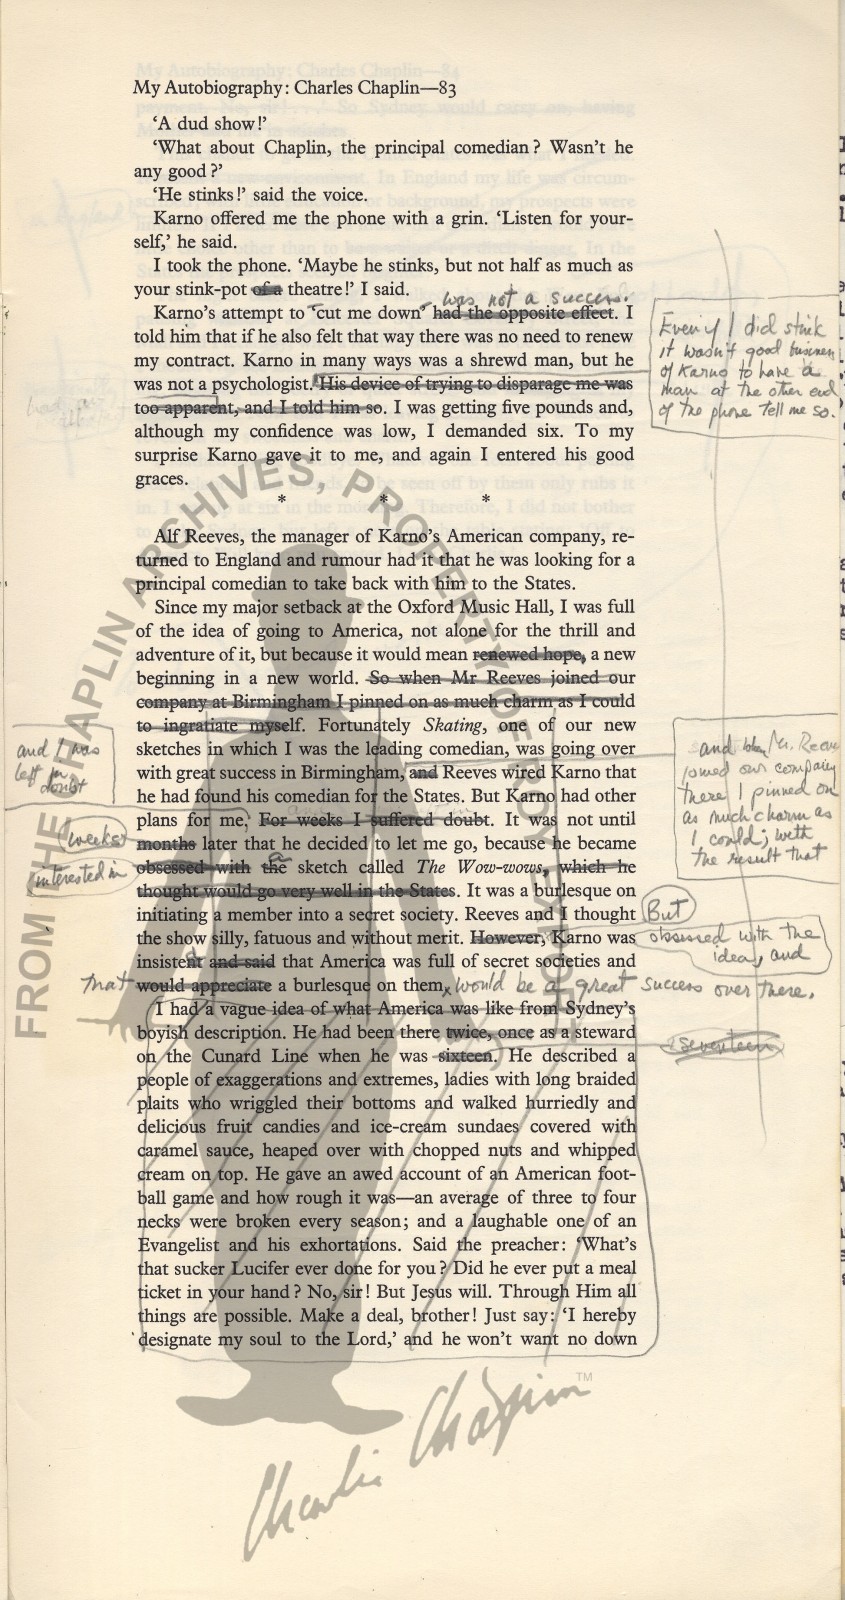 My Autobiography: Charles Chaplin—83
‘A dud show!’
‘What about Chaplin, the principal comedian? Wasn’t he
any good?’
‘He stinks!’ said the voice.
Karno offered me the phone with a grin. ‘Listen for your-
self,’ he said.
I took the phone. ‘Maybe he stinks, but not half as much as
your stink-pot of a theatre!’ I said.
was not a success.
Karno’s attempt to “cut me down” had the opposite effect. I
told him that if he also felt that way there was no need to renew
my contract. Karno in many ways was a shrewd man, but he
was not a psychologist. His device of trying to disparage me was
too apparent, and I told him so. I was getting five pounds and,
although my confidence was low, I demanded six. To my
surprise Karno gave it to me, and again I entered his good
graces.
Even if I did stink
it wasn't good business
of Karno to have a
man at the other end
of the phone tell me so.
* * *
Alf Reeves, the manager of Karno’s American company, re-
turned to England and rumour had it that he was looking for a
principal comedian to take back with him to the States.
Since my major setback at the Oxford Music Hall, I was full
of the idea of going to America, not alone for the thrill and
adventure of it, but because it would mean renewed hope, a new
beginning in a new world. So when Mr Reeves joined our
company at Birmingham I pinned on as much charm as I could
to ingratiate myself. Fortunately Skating, one of our new
sketches in which I was the leading comedian, was going over
with great success in Birmingham, and Reeves wired Karno that
he had found his comedian for the States. But Karno had other
plans for me; For weeks I suffered doubt. It was not until
months later that he decided to let me go, because he became
obsessed with the a sketch called The Wow-wows, which he
thought would go very well in the States. It was a burlesque on
initiating a member into a secret society. Reeves and I thought
the show silly, fatuous and without merit. However, Karno was
insistent and said that America was full of secret societies and
that would appreciate a burlesque on them, would be a great success over there.
and I was
left in
doubt
weeks
interested in
and when Mr. Reeves
joined our company
there I pinned on
as much charm as
I could; with
the result that
But
obsessed with the
idea, and
I had a vague idea of what America was like from Sydney’s
boyish description. He had been there twice, once as a steward
on the Cunard Line when he was sixteen. He described a
seventeen
people of exaggerations and extremes, ladies with long braided
plaits who wriggled their bottoms and walked hurriedly and
delicious fruit candies and ice-cream sundaes covered with
caramel sauce, heaped over with chopped nuts and whipped
cream on top. He gave an awed account of an American foot-
ball game and how rough it was—an average of three to four
necks were broken every season; and a laughable one of an
Evangelist and his exhortations. Said the preacher: ‘What’s
that sucker Lucifer ever done for you? Did he ever put a meal
ticket in your hand? No, sir! But Jesus will. Through Him all
things are possible. Make a deal, brother! Just say: ‘I hereby
designate my soul to the Lord,’ and he won’t want no down
FROM THE CHAPLIN ARCHIVES, PROPERTY OF ROY EXPORT
Charlie Chaplin TM